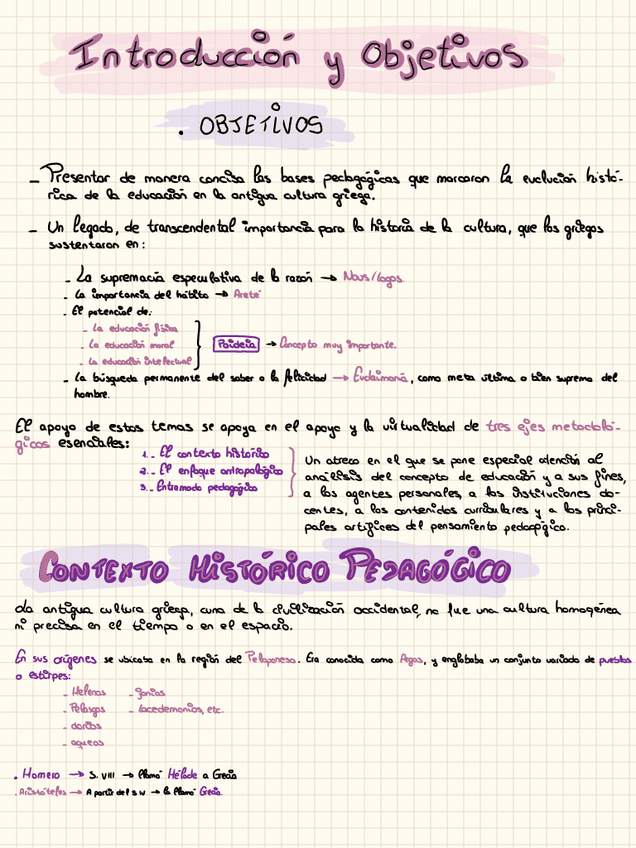 Introducción y Objetivos
. OBJETIVOS
- Presentar de manera concisa las bases pedagógicas que marcaron la evolución histó-
rica de la educación en la antigua cultura griega.
- Un legado, de transcendental importancia para la historia de la cultura, que los griegos
sustentaron en:
- La supremacía especulativa de la razón → Nous/logos.
- La importancia del hábito → Areté
- El potencial de:
- La educación física
- La educación moral
- La educación intelectual
Paideia → Concepto muy importante.
- La búsqueda permanente del saber o la felicidad → Eudaimonía, como meta última o bien supremo del
hombre.
El apoyo de estos temas se apoya en el apoyo y la virtualidad de tres ejes metodoló-
gicos esenciales:
1.- El contexto histórico
2.- El enfoque antropológico
3.- Entramado pedagógico
Un atreco en el que se pone especial atención al
análisis del concepto de educación y a sus fines,
a los agentes personales, a las instituciones do-
centes, a los contenidos curriculares y a los princi-
pales artífices del pensamiento pedagógico.
CONTEXTO HISTÓRICO PEDAGÓGICO
La antigua cultura griega, cuna de la civilización occidental, no fue una cultura homogénea
ni precisa en el tiempo o en el espacio.
En sus orígenes se ubicaba en la región del Peloponeso. Era conocida como Argos, y englobaba un conjunto variado de pueblos
o estirpes:
- Helenos - Jonios
- Pelasgos - lacedemonios, etc.
- dorios
- aqueos
. Homero → S. VIII → llamó Hélade a Grecia
. Aristóteles → A partir del s IV → la llamó Grecia.